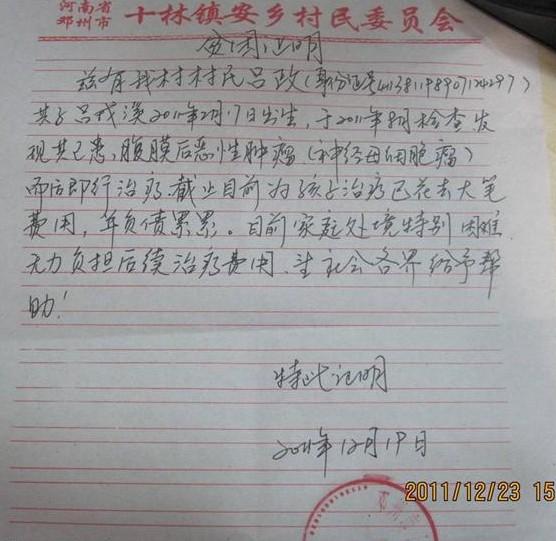 河南省
邓州市 十林镇安乡村民委员会
贫困证明
兹有我村村民吕政(身份证号411381198907124297)
其子吕戎渼2011年2月17日出生,于2011年8月检查发
现其已患,腹膜后恶性肿瘤(神经母细胞瘤)
而后即行治疗.截止目前为孩子治疗已花去大笔
费用,并负债累累。目前家庭处境特别困难.
无力负担后续治疗费用.望社会各界给予帮
助!
特此证明
2011年12月19日
2011/12/23 15